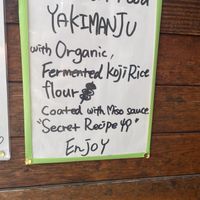 Food
YAKIMANJU
with Organic,
Fermented Koji Rice
flour
Coated with Miso sauce
"Secret Recipe
ENJOY